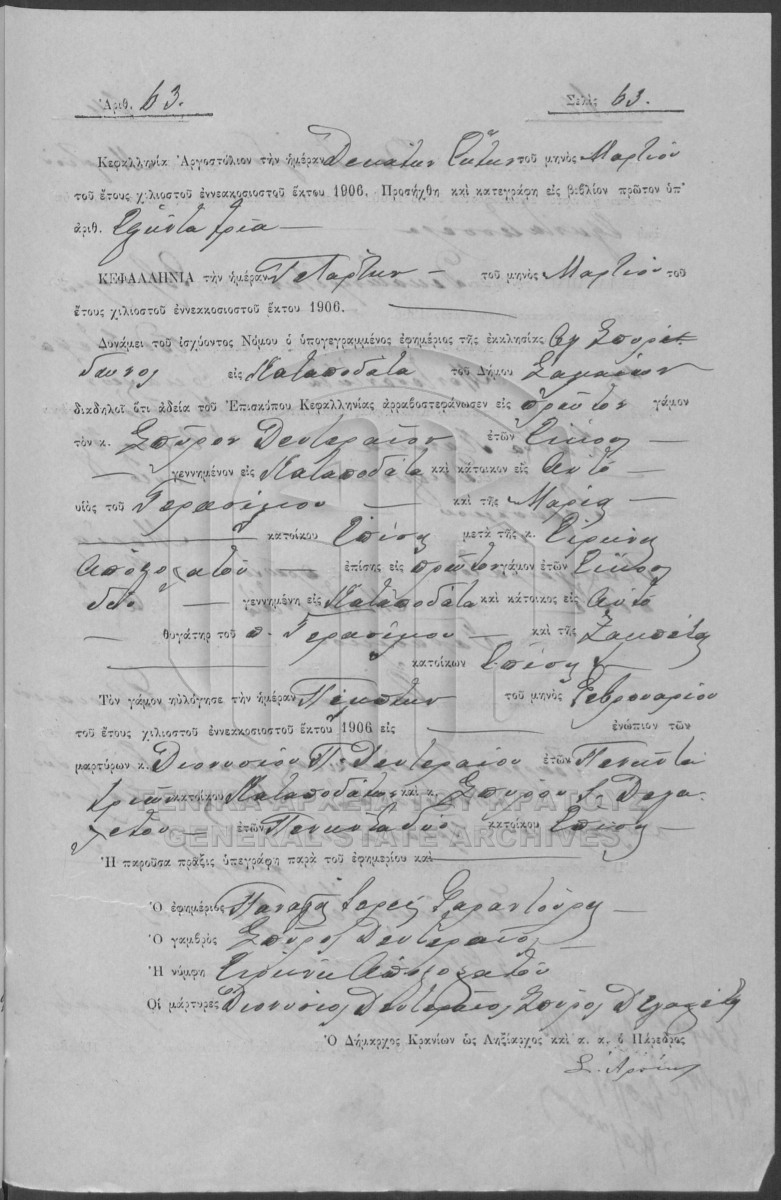 Ἀριθ. 63. Σελὶς 63.
Κεφαλληνία Ἀργοστόλιον τὴν ἡμέραν Δεκάτην Ἕκτην τοῦ μηνὸς Μαρτίου
τοῦ ἔτους χιλιοστοῦ ἐννεακοσιοστοῦ ἕκτου 1906. Προσήχθη καὶ κατεγράφη εἰς βιβλίον πρῶτον ὑπ'
ἀριθ. Ἑξῆντα τρία
ΚΕΦΑΛΛΗΝΙΑ τὴν ἡμέραν Τετάρτην τοῦ μηνὸς Μαρτίου τοῦ
ἔτους χιλιοστοῦ ἐννεακοσιοστοῦ ἕκτου 1906.
Δυνάμει τοῦ ἰσχύοντος Νόμου ὁ ὑπογεγραμμένος ἐφημέριος τῆς ἐκκλησίας Αγ Σπυρί
δωνος εἰς Καταποδάτα τοῦ Δήμου Σαμαίων
διαδηλοῖ ὅτι ἀδείᾳ τοῦ Ἐπισκόπου Κεφαλληνίας ἀρραβοστεφάνωσεν εἰς πρῶτον γάμον
τὸν κ. Σπῦρον Δευτεραῖον ἐτῶν Εἴκοσι
γεννημένον εἰς Καταποδάτα καὶ κάτοικον εἰς Αυτό
υἱὸς τοῦ Γερασίμου καὶ τῆς Μαρίας
κατοίκου Ἐπίσης μετὰ τῆς κ. Εἰρήνης
Αποστολάτου ἐπίσης εἰς πρῶτον γάμον ἐτῶν Εἴκοσι
δύο γεννημένη εἰς Καταποδάτα καὶ κάτοικος εἰς Αυτό
θυγάτηρ τοῦ π. Γερασίμου καὶ τῆς Ζαμπέτας
κατοίκων Ἐπίσης
Τὸν γάμον ηὐλόγησε τὴν ἡμέραν Πέμπτην τοῦ μηνὸς Φεβρουαρίου
τοῦ ἔτους χιλιοστοῦ ἐννεακοσιοστοῦ ἕκτου 1906 εἰς ἐνώπιον τῶν
μαρτύρων κ. Διονυσίου Π. Δευτεραίου ἐτῶν Πενῆντα
τριῶν κατοίκου Καταποδάτα καὶ κ. Σπύρου
ἐτῶν Πενῆντα δύο κατοίκου Ἐπίσης
ΓΕΝΙΚΑ ΑΡΧΕΙΑ ΤΟΥ ΚΡΑΤΟΥΣ
GENERAL STATE ARCHIVES
Ἡ παροῦσα πρᾶξις ὑπεγράφη παρὰ τοῦ ἐφημερίου καὶ
Ὁ ἐφημέριος Παναγῆς Ἱερεὺς
Ὁ γαμβρὸς Σπῦρος Δευτεραῖος
Ἡ νύμφη Εἰρήνη Αποστολάτου
Οἱ μάρτυρες Διονύσιος Δευτεραῖος Σπῦρος
Ὁ Δήμαρχος Κρανίων ὡς Ληξίαρχος καὶ α. α. ὁ Πάρεδρος